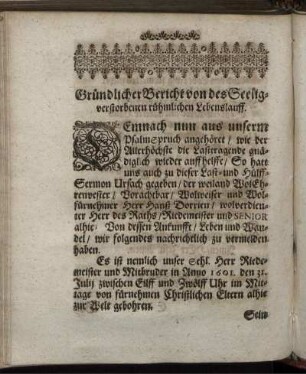 Gründlicher Bericht von des Seelig-
verstorbenen rühmlichen Lebenslauff.
DEmnach nun aus unserm
Psalm-Spruch angehöret / wie der
Allerhöchste die Lasttragende gnä-
diglich wieder auff helffe / So hatt
uns auch zu dieser Last- und Hülff-
Sermon Ursach gegeben / der weiland WolEh-
renvester / Vorachtbar / Wolweiser und Wol-
fürnehmer Herr Hanß Dorrien / wolverdien-
ter Herr des Raths / Riedemeister und SENIOR
alhie / Von dessen Ankunfft / Leben und Wan-
del / wir folgendes nachrichtlich zu vermelden
haben.
Es ist nemlich unser Sehl. Herr Riede-
meister und Mitbruder in Anno 1601. den 31.
Julij zwischen Eilff und Zwölff Uhr im Mit-
tage von fürnehmen Christlichen Eltern alhie
zur Welt gebohren.
Sein